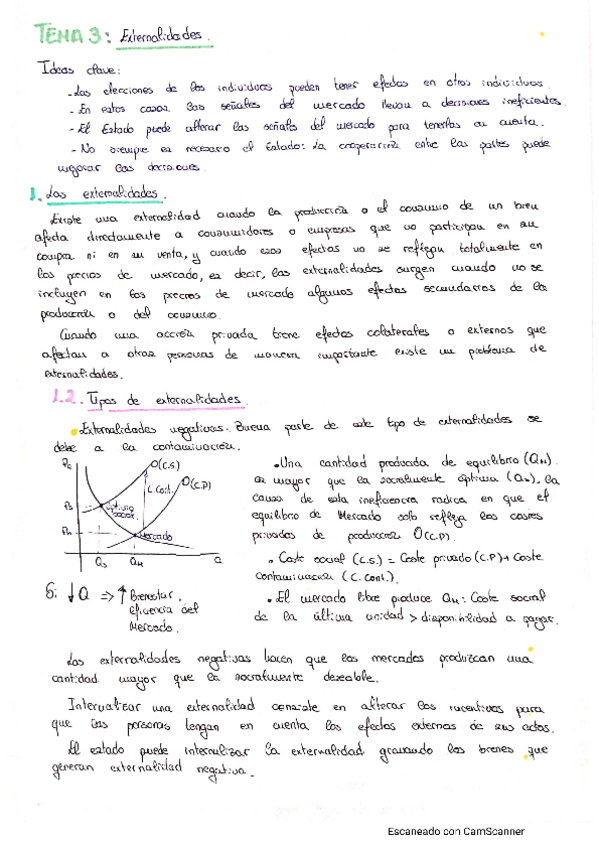 TEMA 3: Externalidades.
Ideas clave:
- Las elecciones de los individuos pueden tener efectos en otros individuos.
- En estos casos las señales del mercado llevan a decisiones ineficientes.
- El Estado puede alterar las señales del mercado para tenerlas en cuenta.
- No siempre es necesario el Estado: La cooperación entre las partes puede
mejorar las decisiones.
1. Las externalidades.
Existe una externalidad cuando la producción o el consumo de un bien
afecta directamente a consumidores o empresas que no participan en su
compra ni en su venta, y cuando esos efectos no se reflejan totalmente en
los precios de mercado, es decir, las externalidades surgen cuando no se
incluyen en los precios de mercado algunos efectos secundarios de la
producción o del consumo.
Cuando una acción privada tiene efectos colaterales o externos que
afectan a otras personas de manera importante existe un problema de
externalidades.
1.2. Tipos de externalidades.
Externalidades negativas. Buena parte de este tipo de externalidades se
debe a la contaminación.
O(C.S.)
C.Cont.
O(C.P)
óptimo
social
Mercado
Ps
Pm
Qs Qm Q
Si ↓Q => ↑ Bienestar,
eficiencia del
Mercado.
• Una cantidad producida de equilibrio (QM)
es mayor que la socialmente óptima (Qs), la
causa de esta ineficiencia radica en que el
equilibrio de Mercado solo refleja los costes
privados de producción O(C.P)
• Coste social (C.S.) = Coste privado (C.P) + Coste
contaminación (C.Cont.).
• El mercado libre produce QM: Coste social
de la última unidad > disponibilidad a pagar.
Las externalidades negativas hacen que los mercados produzcan una
cantidad mayor que la socialmente deseable.
Internalizar una externalidad consiste en alterar los incentivos para
que las personas tengan en cuenta los efectos externos de sus actos.
El estado puede internalizar la externalidad gravando los bienes que
generan externalidad negativa.
Escaneado con CamScanner